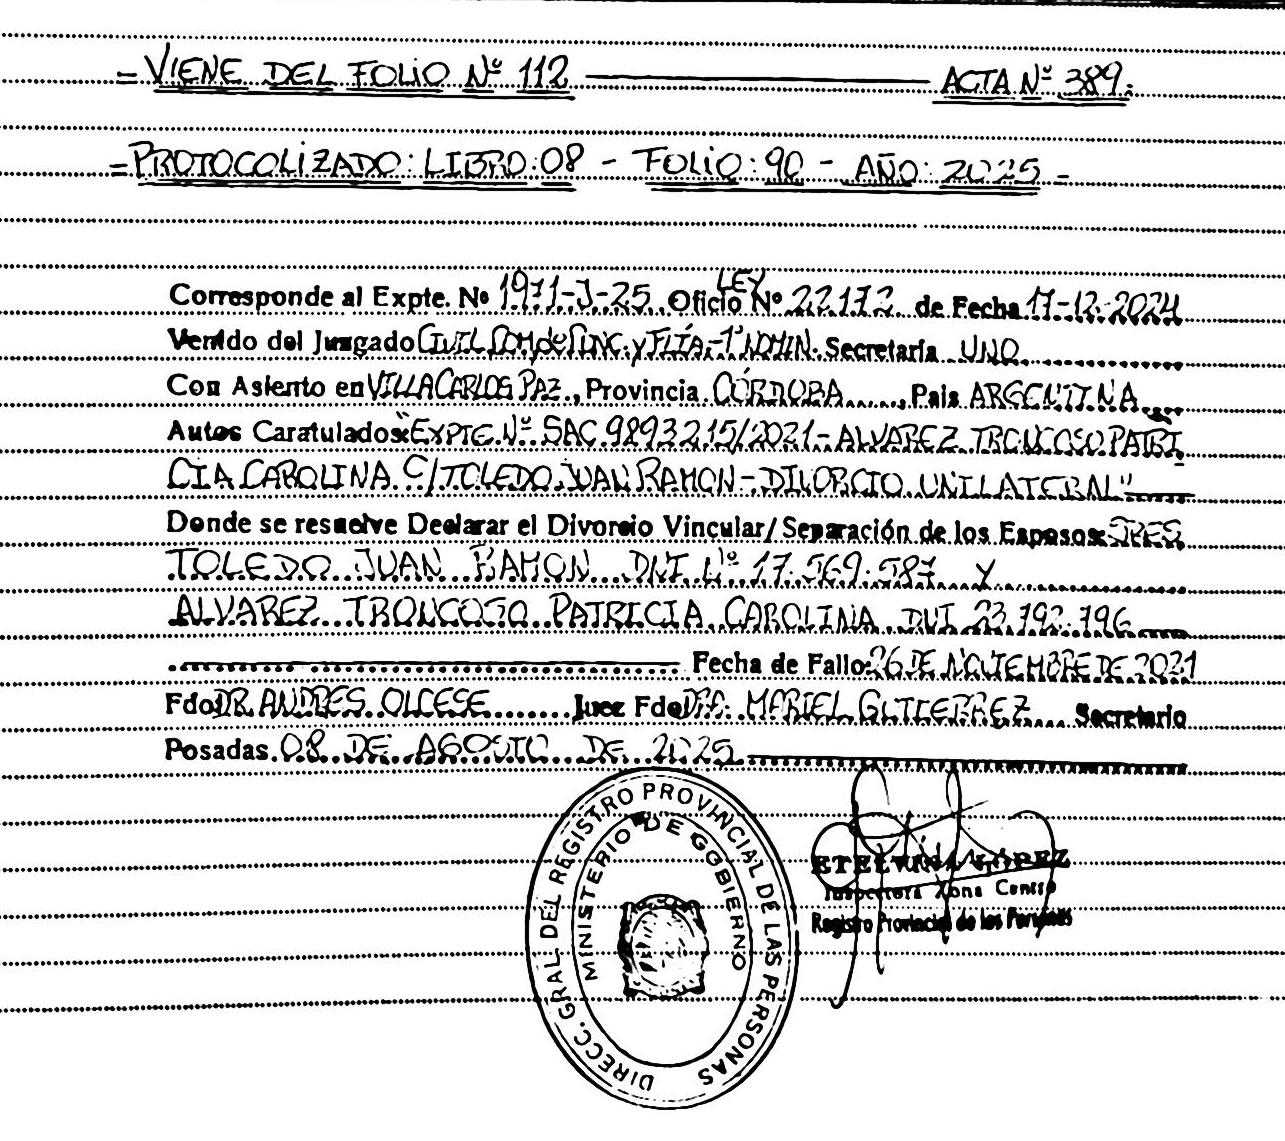 = VIENE DEL FOLIO Nº 112 ——— ACTA Nº 389.
= PROTOCOLIZADO: LIBRO: 08 - FOLIO: 90 - AÑO: 2025 -
Corresponde al Expte. Nº 1971-J-25 Oficio LEY Nº 22.172 de Fecha 17-12-2024
Venido del Juzgado CIVIL COM. de CONC. y FLÍA - 1ª NOMIN. Secretaría UNO
Con Asiento en VILLA CARLOS PAZ, Provincia CÓRDOBA, País ARGENTINA
Autos Caratulados: "EXPTE. Nº SAC 9893215/2021 - ALVAREZ TRONCOSO PATRI
CIA CAROLINA C/ TOLEDO JUAN RAMON - DIVORCIO UNILATERAL"
Donde se resuelve Declarar el Divorcio Vincular/Separación de los Esposos: SRES
TOLEDO JUAN RAMON DNI Nº 17.569.587 Y
ALVAREZ TRONCOSO PATRICIA CAROLINA DNI 23.792.796
Fecha de Fallo: 26 DE NOVIEMBRE DE 2021
Fdo: DR. ANDRES OLCESE Juez Fdo DRA. MARIEL GUTIERREZ Secretario
Posadas 08 DE AGOSTO DE 2025
DIRECC. GRAL. DEL REGISTRO PROVINCIAL DE LAS PERSONAS
MINISTERIO DE GOBIERNO
ETELVINA LÓPEZ
Inspectora Zona Centro
Registro Provincial de las Personas